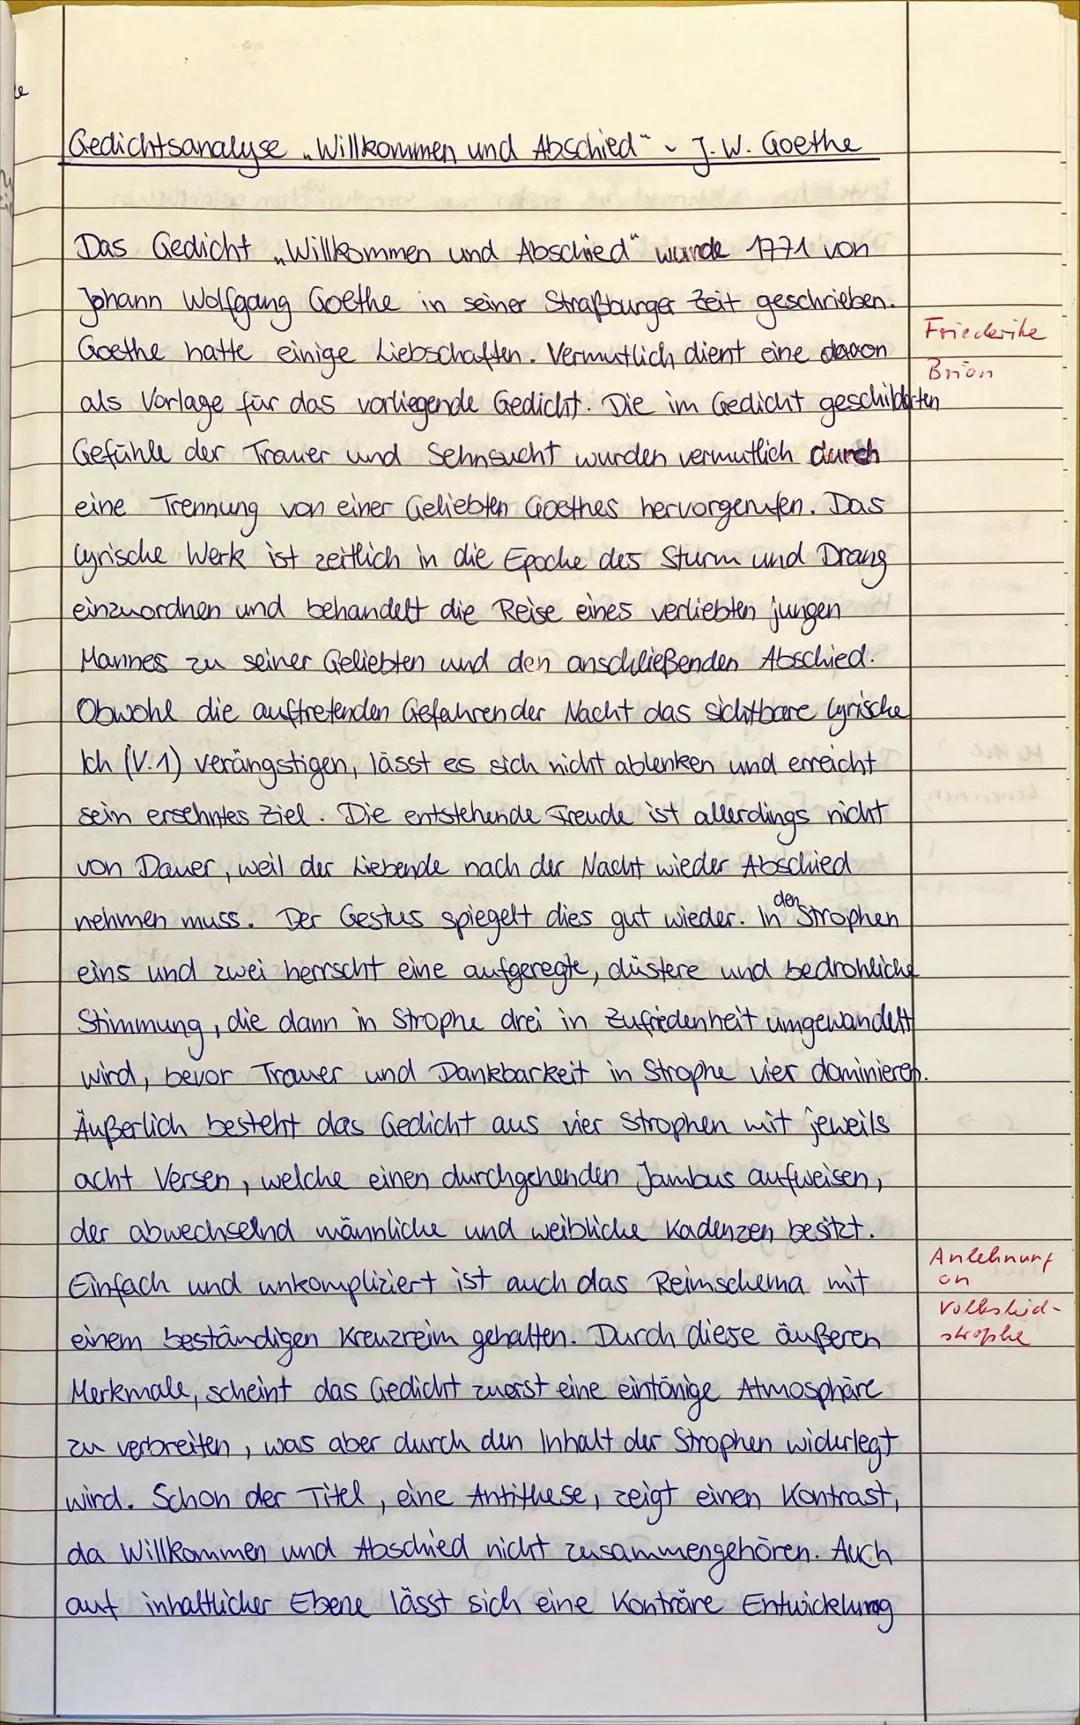 Gedichtsanalyse „Willkommen und Abschied" - J. W. Goethe
Das Gedicht „Willkommen und Abschied" wurde 1771 von
Johann Wolfgang Goethe in seiner Straßburger Zeit geschrieben.
Goethe hatte einige Liebschaften. Vermutlich dient eine davon
Friederike
Brion
als Vorlage für das vorliegende Gedicht. Die im Gedicht geschilderten
Gefühle der Trauer und Sehnsucht wurden vermutlich durch
eine Trennung von einer Geliebten Goethes hervorgerufen. Das
lyrische Werk ist zeitlich in die Epoche des Sturm und Drang
einzuordnen und behandelt die Reise eines verliebten jungen
Mannes zu seiner Geliebten und den anschließenden Abschied.
Obwohl die auftretenden Gefahren der Nacht das sichtbare lyrische
Ich (V.1) verängstigen, lässt es sich nicht ablenken und erreicht
sein ersehntes Ziel. Die entstehende Freude ist allerdings nicht
von Dauer, weil der Liebende nach der Nacht wieder Abschied
nehmen muss. Der Gestus spiegelt dies gut wieder. In den Strophen
eins und zwei herrscht eine aufgeregte, düstere und bedrohliche
Stimmung, die dann in Strophe drei in Zufriedenheit umgewandelt
wird, bevor Trauer und Dankbarkeit in Strophe vier dominieren.
Äußerlich besteht das Gedicht aus vier Strophen mit jeweils
acht Versen, welche einen durchgehenden Jambus aufweisen,
der abwechselnd männliche und weibliche Kadenzen besitzt.
Einfach und unkompliziert ist auch das Reimschema mit
einem beständigen Kreuzreim gehalten. Durch diese äußeren
Anlehnung
an
Volkslied-
strophe
Merkmale, scheint das Gedicht zuerst eine eintönige Atmosphäre
zu verbreiten, was aber durch den Inhalt der Strophen widerlegt
wird. Schon der Titel, eine Antithese, zeigt einen Kontrast,
da Willkommen und Abschied nicht zusammengehören. Auch
auf inhaltlicher Ebene lässt sich eine Konträre Entwicklung